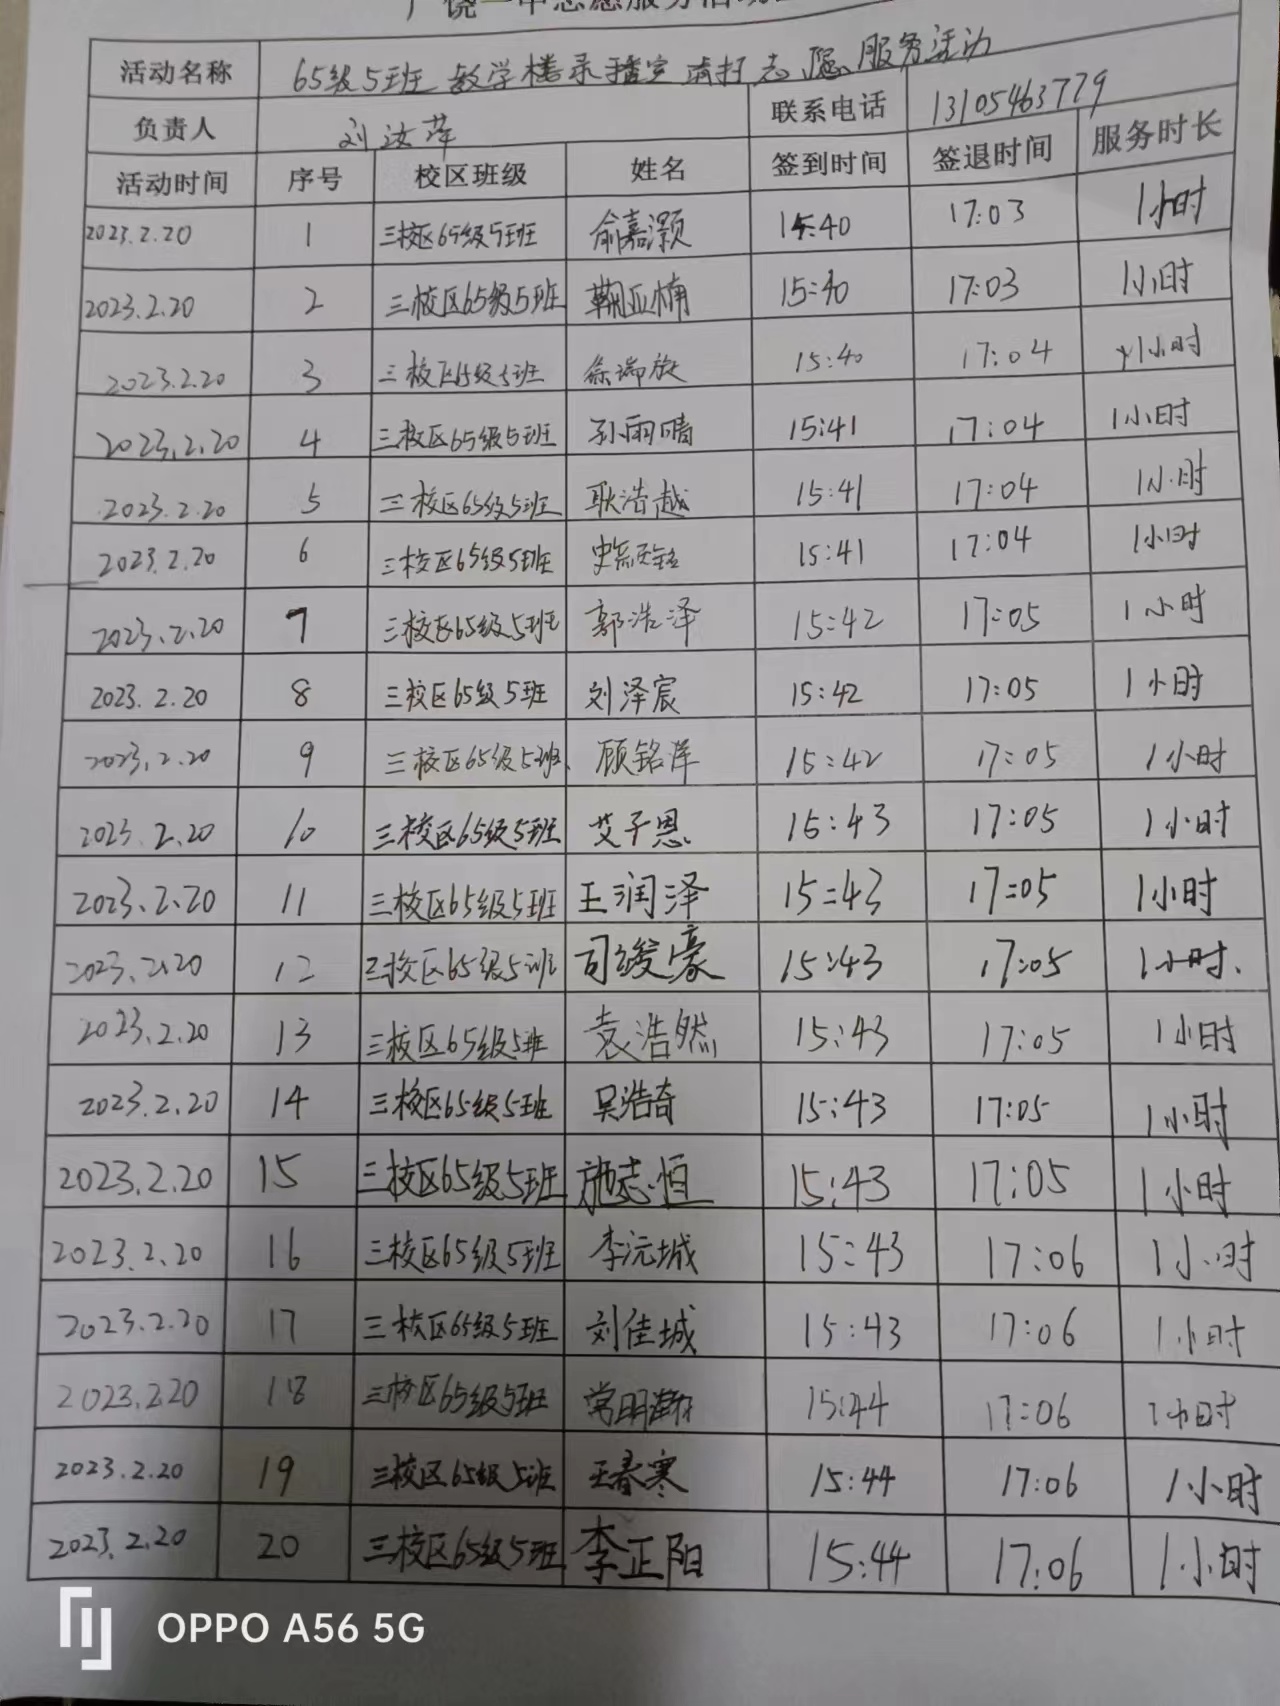 广饶一中志愿服务活动
活动名称 65级5班 教学楼录播室 清扫志愿服务活动
负责人 刘汝萍 联系电话 13105463779
活动时间 序号 校区班级 姓名 签到时间 签退时间 服务时长
2023.2.20 1 三校区65级5班 俞嘉灏 15:40 17:03 1小时
2023.2.20 2 三校区65级5班 鞠亚楠 15:40 17:03 1小时
2023.2.20 3 三校区65级5班 徐端旋 15:40 17:04 1小时
2023.2.20 4 三校区65级5班 孙雨晴 15:41 17:04 1小时
2023.2.20 5 三校区65级5班 耿浩越 15:41 17:04 1小时
2023.2.20 6 三校区65级5班 15:41 17:04 1小时
2023.2.20 7 三校区65级5班 郭浩泽 15:42 17:05 1小时
2023.2.20 8 三校区65级5班 刘泽宸 15:42 17:05 1小时
2023.2.20 9 三校区65级5班 顾铭洋 15:42 17:05 1小时
2023.2.20 10 三校区65级5班 艾子恩 15:43 17:05 1小时
2023.2.20 11 三校区65级5班 王润泽 15:43 17:05 1小时
2023.2.20 12 三校区65级5班 司竣豪 15:43 17:05 1小时
2023.2.20 13 三校区65级5班 袁浩然 15:43 17:05 1小时
2023.2.20 14 三校区65级5班 吴浩奇 15:43 17:05 1小时
2023.2.20 15 三校区65级5班 施志恒 15:43 17:05 1小时
2023.2.20 16 三校区65级5班 李沅城 15:43 17:06 1小时
2023.2.20 17 三校区65级5班 刘佳城 15:43 17:06 1小时
2023.2.20 18 三校区65级5班 常明瀚 15:44 17:06 1小时
2023.2.20 19 三校区65级5班 王春寒 15:44 17:06 1小时
2023.2.20 20 三校区65级5班 李正阳 15:44 17:06 1小时
OPPO A56 5G